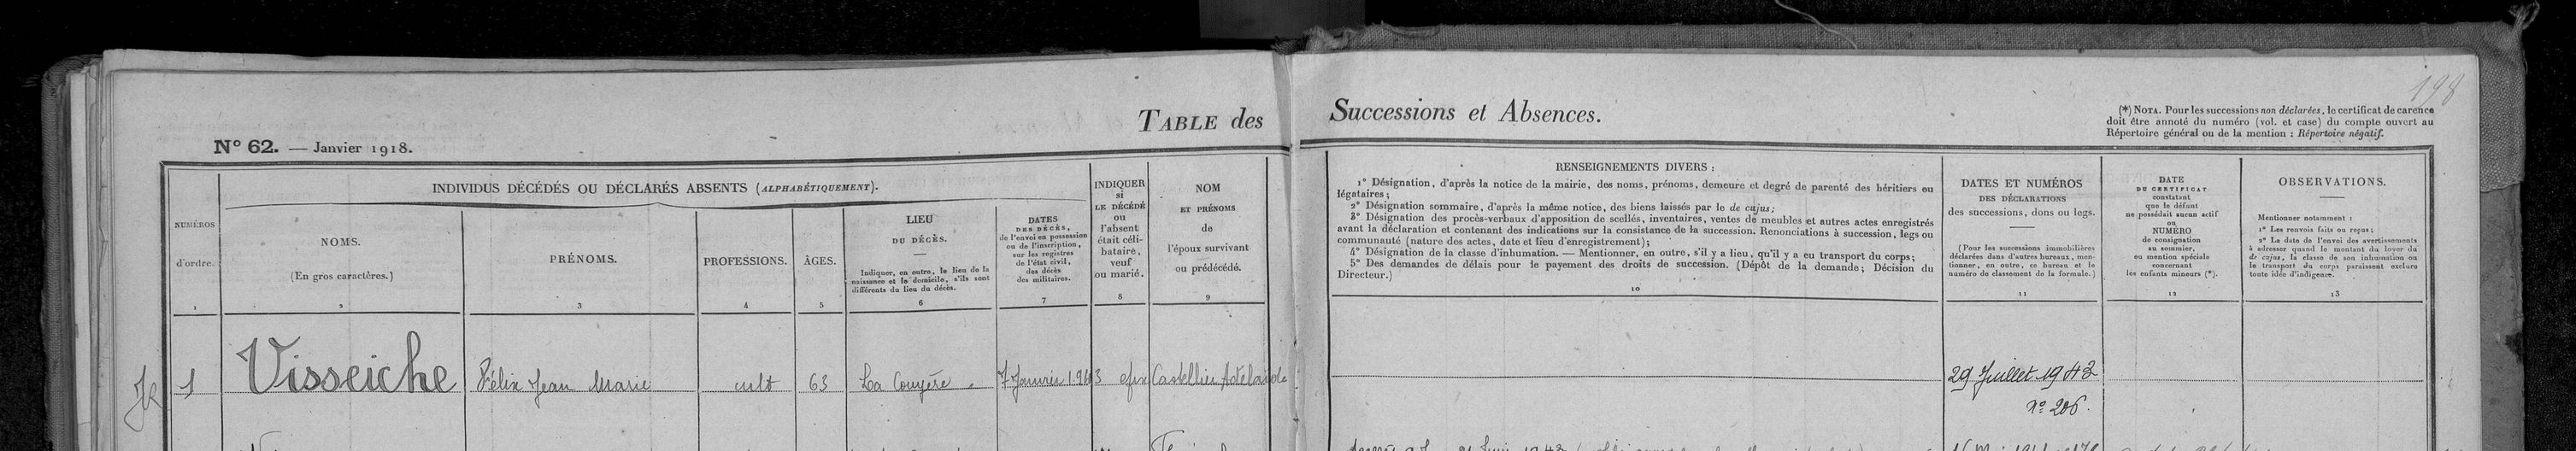 198
TABLE des Successions et Absences.
N° 62. — Janvier 1918.
(*) NOTA. Pour les successions non déclarées, le certificat de carence
doit être annoté du numéro (vol. et case) du compte ouvert au
Répertoire général ou de la mention : Répertoire négatif.
INDIVIDUS DÉCÉDÉS OU DÉCLARÉS ABSENTS (ALPHABÉTIQUEMENT).
NUMÉROS
d'ordre.
1
NOMS.
(En gros caractères.)
2
PRÉNOMS.
3
PROFESSIONS.
4
ÂGES.
5
LIEU
DU DÉCÈS.
Indiquer, en outre, le lieu de la
naissance et le domicile, s'ils sont
différents du lieu du décès.
6
DATES
DES DÉCÈS,
de l'envoi en possession
ou de l'inscription,
sur les registres
de l'état civil,
des décès
des militaires.
7
INDIQUER
si
LE DÉCÉDÉ
ou
l'absent
était céli-
bataire,
veuf
ou marié.
8
NOM
ET PRÉNOMS
de
l'époux survivant
ou prédécédé.
9
RENSEIGNEMENTS DIVERS :
1° Désignation, d'après la notice de la mairie, des noms, prénoms, demeure et degré de parenté des héritiers ou
légataires;
2° Désignation sommaire, d'après la même notice, des biens laissés par le de cujus;
3° Désignation des procès-verbaux d'apposition de scellés, inventaires, ventes de meubles et autres actes enregistrés
avant la déclaration et contenant des indications sur la consistance de la succession. Renonciations à succession, legs ou
communauté (nature des actes, date et lieu d'enregistrement);
4° Désignation de la classe d'inhumation. — Mentionner, en outre, s'il y a lieu, qu'il y a eu transport du corps;
5° Des demandes de délais pour le payement des droits de succession. (Dépôt de la demande; Décision du
Directeur.)
10
DATES ET NUMÉROS
DES DÉCLARATIONS
des successions, dons ou legs.
(Pour les successions immobilières
déclarées dans d'autres bureaux, men-
tionner, en outre, ce bureau et le
numéro de classement de la formule.)
11
DATE
DU CERTIFICAT
constatant
que le défunt
ne possédait aucun actif
ou
NUMÉRO
de consignation
au sommier,
ou mention spéciale
concernant
les enfants mineurs (*).
12
OBSERVATIONS.
Mentionner notamment :
1° Les renvois faits ou reçus;
2° La date de l'envoi des avertissements
à adresser quand le montant du loyer du
de cujus, la classe de son inhumation ou
le transport du corps paraissent exclure
toute idée d'indigence.
13
1 Visseiche Félix Jean Marie cult 63 La Couyère 7 Janvier 1943 epx Castellier Adelaïde 29 Juillet 1943
N° 206.